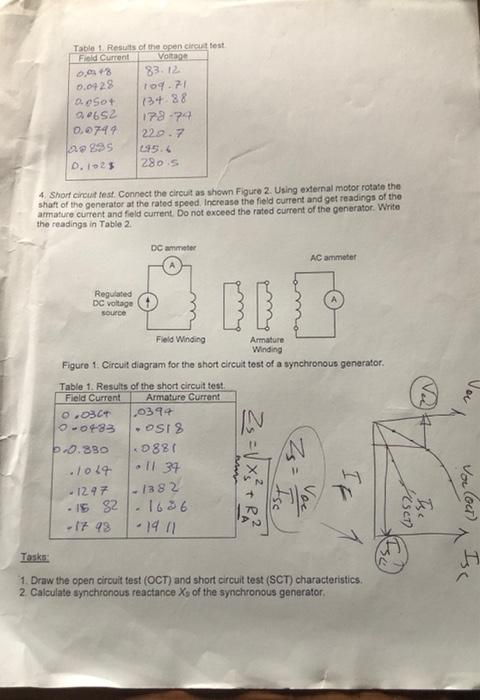 Table 1. Results of the open circuit test.
Field Current Voltage
83.12
0.0428 109.71
0.0504 134.88
0.0652 178.74
0.0794 220.7
280.5
4. Short circuit test. Connect the circuit as shown Figure 2. Using external motor rotate the
shaft of the generator at the rated speed. Increase the field current and get readings of the
armature current and field current. Do not exceed the rated current of the generator. Write
the readings in Table 2.
DC ammeter
AC ammeter
A
Regulated
DC voltage
source
A
Field Winding
Armature
Winding
Figure 1. Circuit diagram for the short circuit test of a synchronous generator.
Table 1. Results of the short circuit test.
Field Current Armature Current
0.0364 .0394
0.0483 .0518
.0881
.1064 .1134
.1297 .1382
.1582 .1636
.1793 .1911
Zs = √Xs² + RA²
Zs = Voc / Isc
IF
Isc
(SCT)
Isc
Voc
Voc
Voc (OCT)
Isc
Tasks:
1. Draw the open circuit test (OCT) and short circuit test (SCT) characteristics.
2. Calculate synchronous reactance Xs of the synchronous generator.